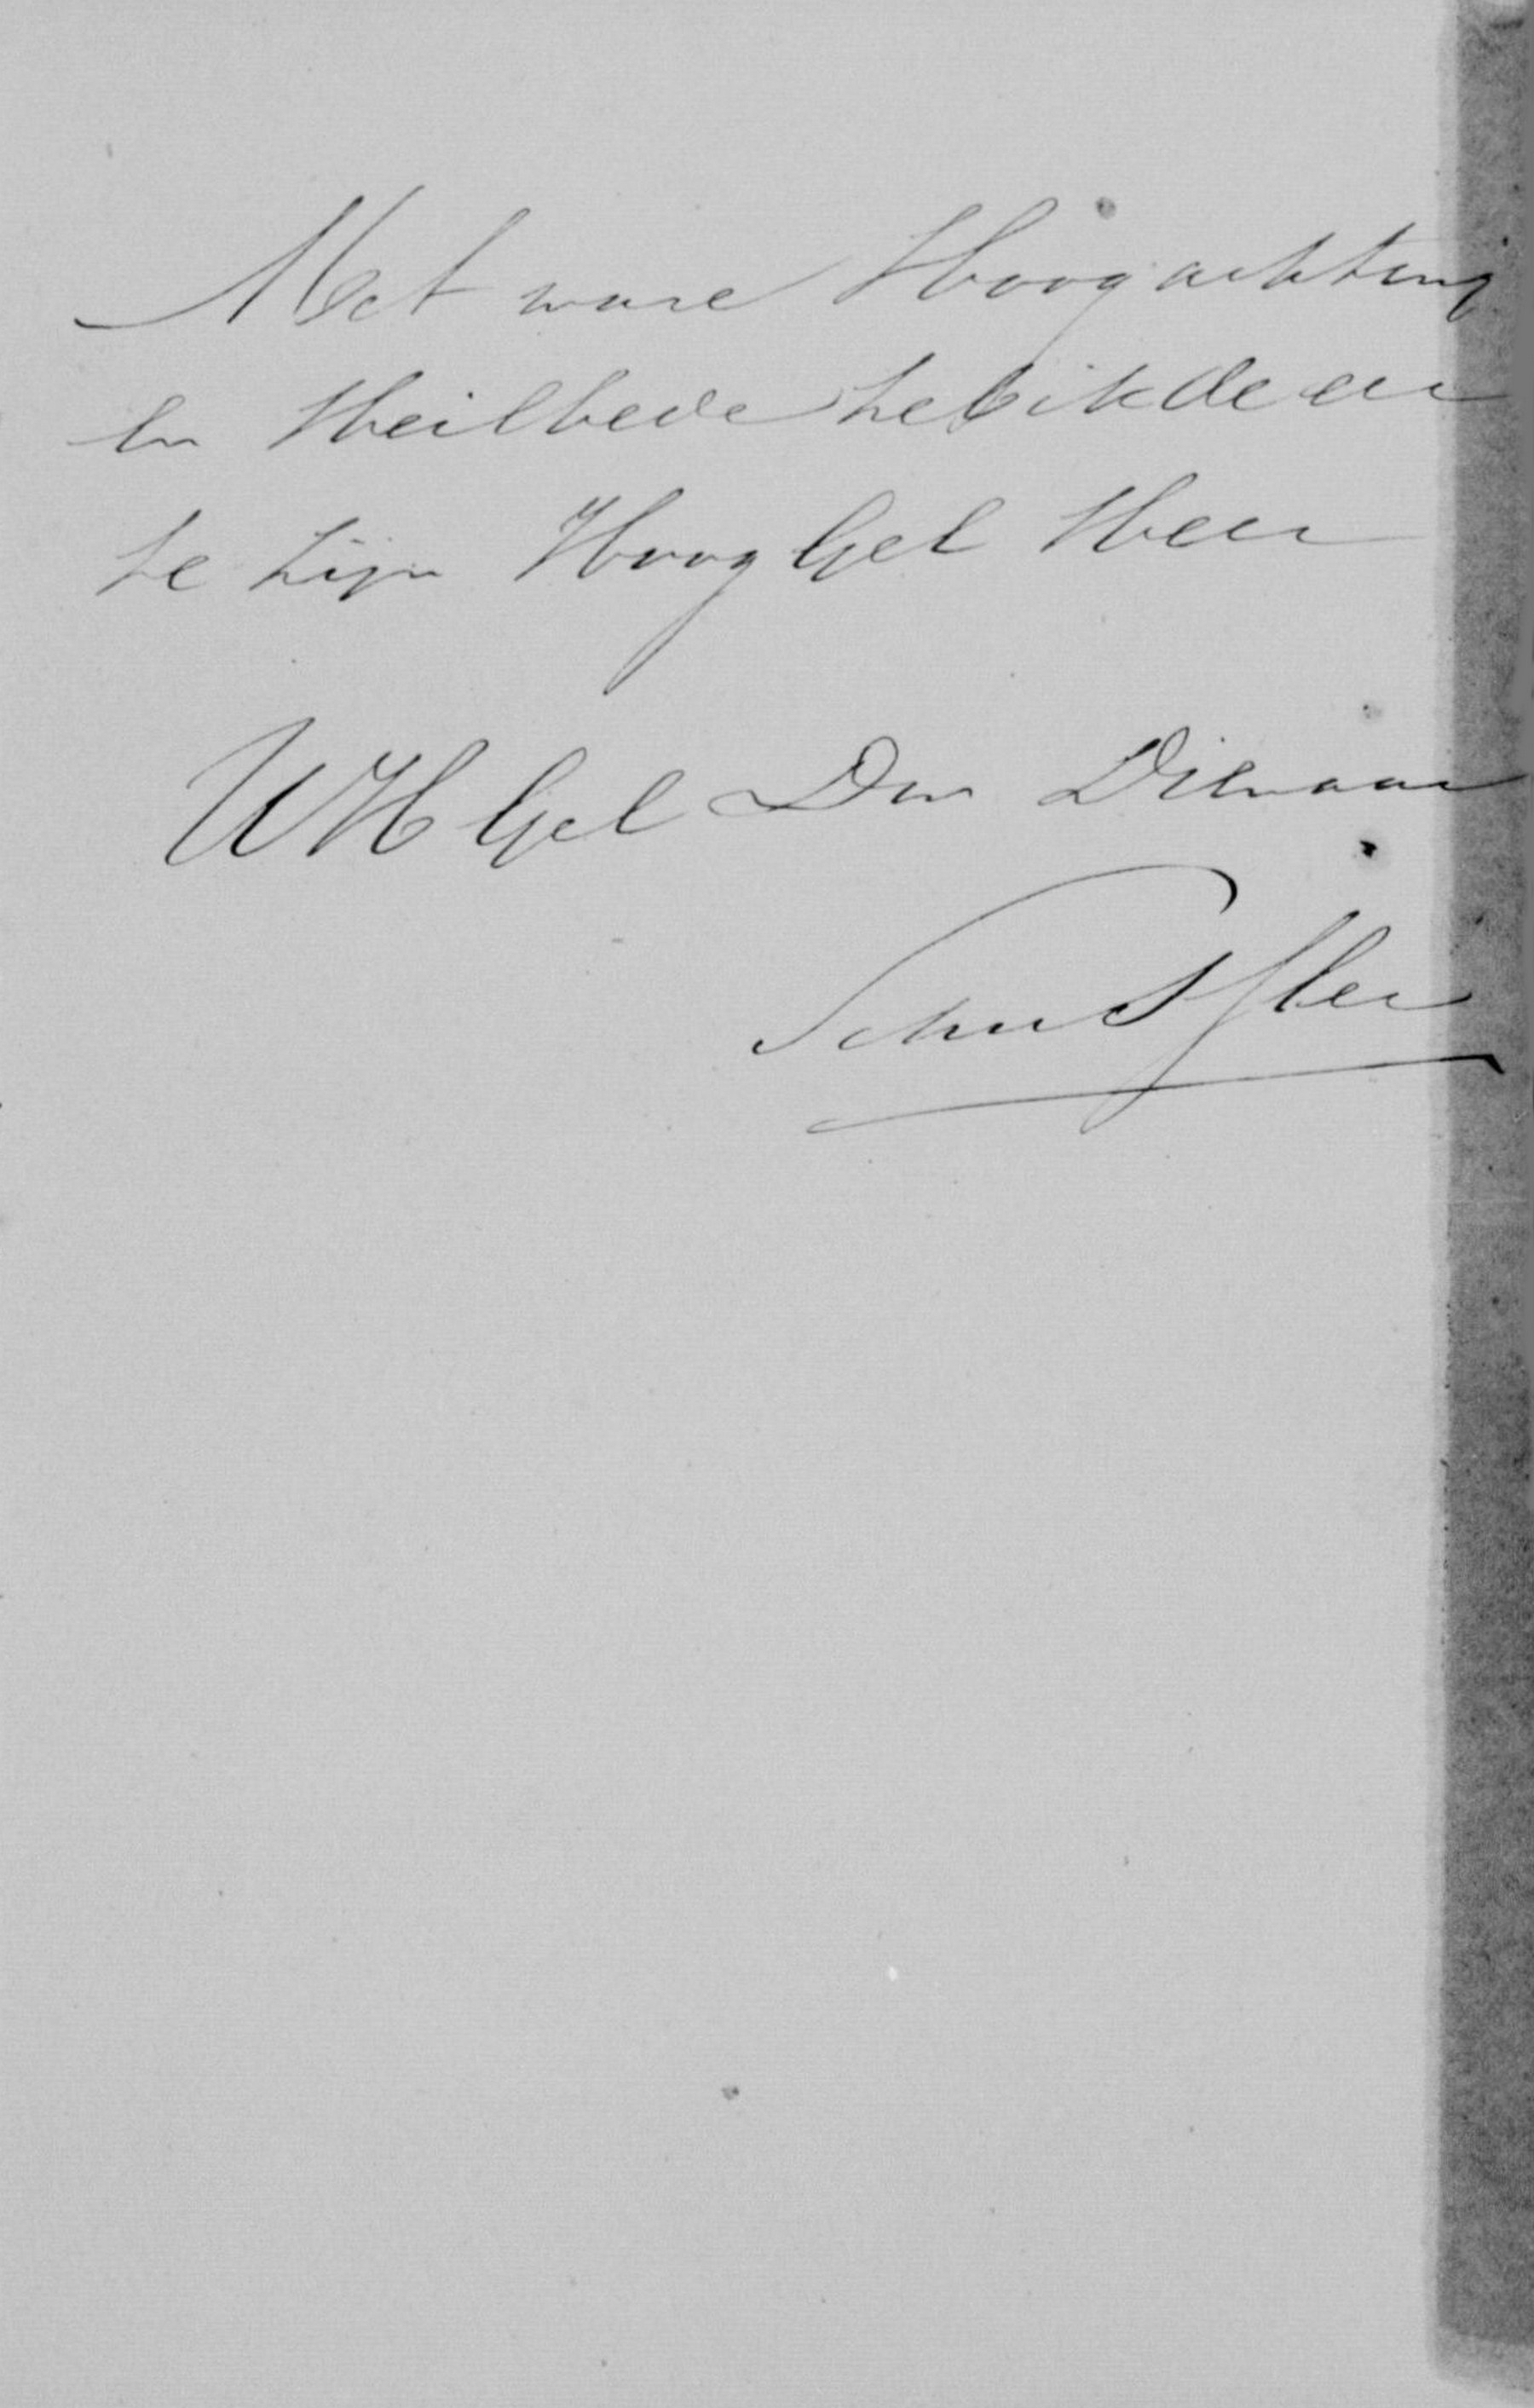 Met ware Hoogachting
en Heilbede heb ik de eer
te zijn HoogGel Heer
UHGel Dw Dienaar